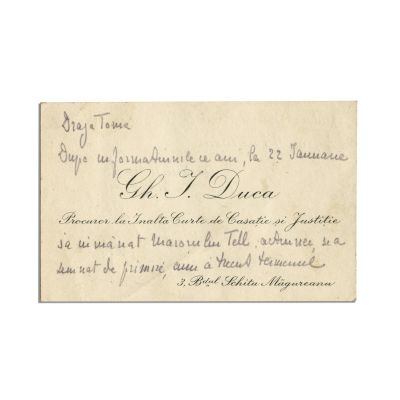 Dragă Toma
După informațiunile ce am, la 22 Ianuarie
Gh. I. Duca
Procuror la Inalta Curte de Casație și Justiție
s'a înmânat Maiorului Tell, s'a
semnat de primire, a trecut termenul
3, Bdul Schitu Măgureanu